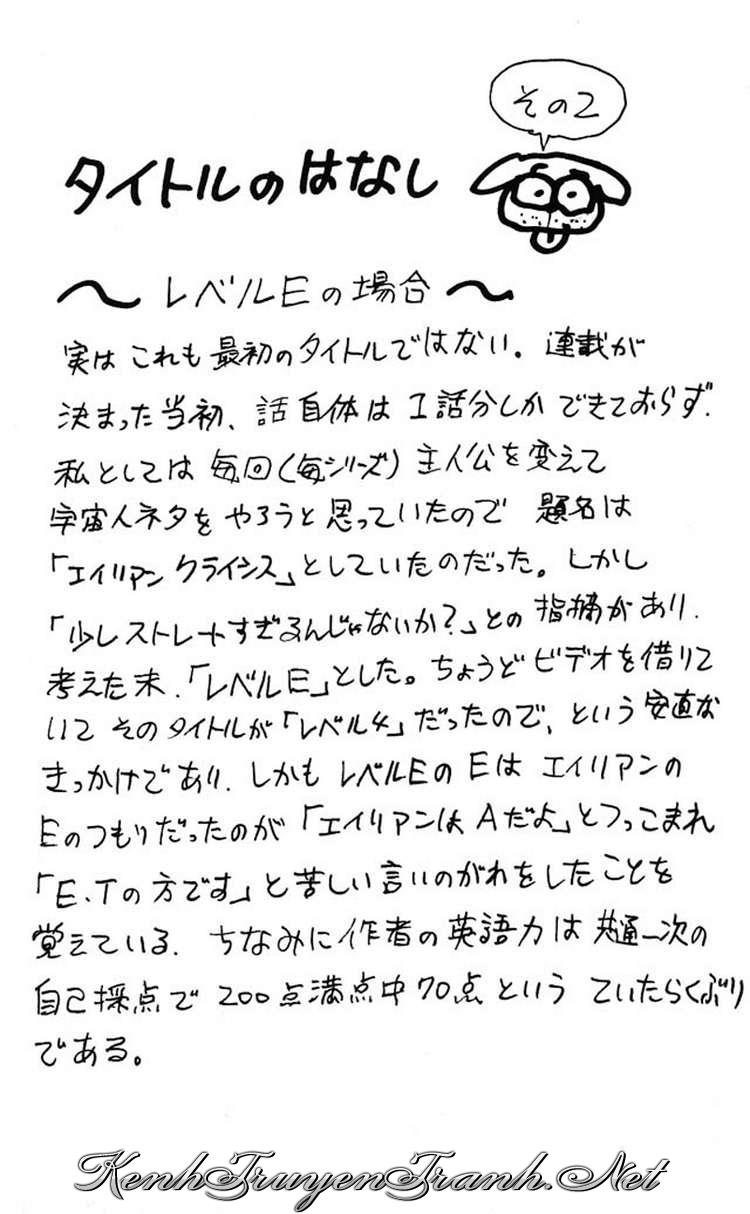 その2
タイトルのはなし
〜レベルEの場合〜
実はこれも最初のタイトルではない。連載が
決まった当初、話自体は1話分しかできておらず、
私としては毎回(毎シリーズ)主人公を変えて
宇宙人ネタをやろうと思っていたので題名は
「エイリアンクライシス」としていたのだった。しかし
「少しストレートすぎるんじゃないか?」との指摘があり、
考えた末、「レベルE」とした。ちょうどビデオを借りて
いてそのタイトルが「レベル4」だったので、という安直な
きっかけであり、しかもレベルEのEはエイリアンの
Eのつもりだったのが「エイリアンはAだよ」とつっこまれ
「E.Tの方です」と苦しい言いのがれをしたことを
覚えている。ちなみに作者の英語力は共通一次の
自己採点で200点満点中70点というていたらくぶり
である。
KenhTruyenTranh.Net